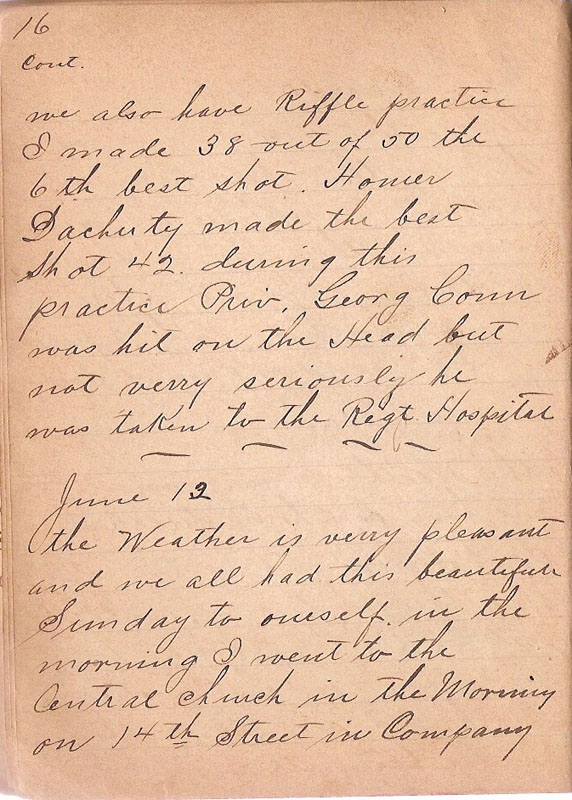 16
Cont.
we also have Riffle practice
I made 38 out of 50 the
6th best shot. Homer
Dacherty made the best
shot 42. during this
practice Priv. Georg Conn
was hit on the Head but
not verry seriously he
was taken to the Regt. Hospital
June 13
the Weather is verry pleasant
and we all had this beautifull
Sunday to oneself. in the
morning I went to the
Central church in the Morning
on 14th Street in Company